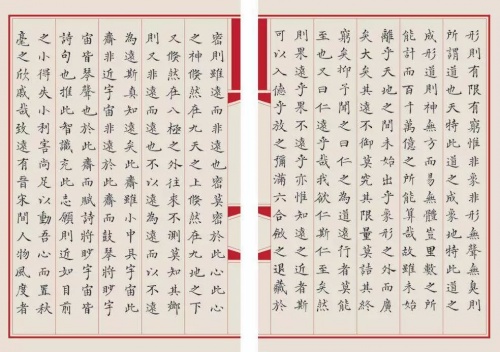 形則有限有窮惟非象非形無聲無臭則
所謂道也天特此道之成象地特此道之
成形道則神無方而易無體豈里數之所
能計而百千萬億之所能算哉故雖未始
離乎天地之間未始出乎形象之外而廣
矣大矣其遠不御莫究其限量莫詰其終
窮矣抑予聞之曰仁之為道遠行者莫能
至也又曰仁遠乎哉我欲仁斯仁至矣然
則果遠乎果不遠乎亦惟知遠之近
可以入德乎放之彌滿六合斂之退藏於
密則無遠而非遠也密莫密於此心此心
之神倏然在九天之上倏然在九地之下
又倏然在八極之外往來不測莫知其鄉
則又非遠而遠也不以遠為遠而以不遠
為遠斯真知遠矣此齋雖小中具宇宙此
齋非近宇宙非遠於此齋而鼓琴將眇宇
宙皆琴聲也於此齋而賦詩將眇宇宙皆
詩句也推此智識充此志願則近如目前
之小得失小利害尚足以動吾心而置秋
毫之欣戚哉致遠有晉宋間人物風度者